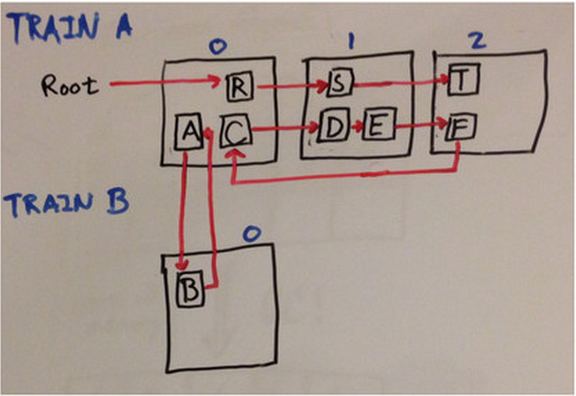 TRAIN A
0 1 2
Root R S T
A C D E F
TRAIN B
0
B